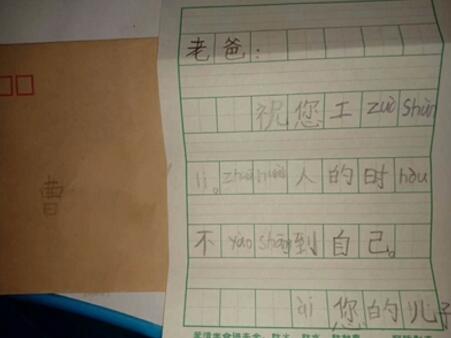 老爸：
祝您工zuò shùn
lì。zhuā huài人的时hòu
不yào shāng到自己。
ài 您的儿子
曹